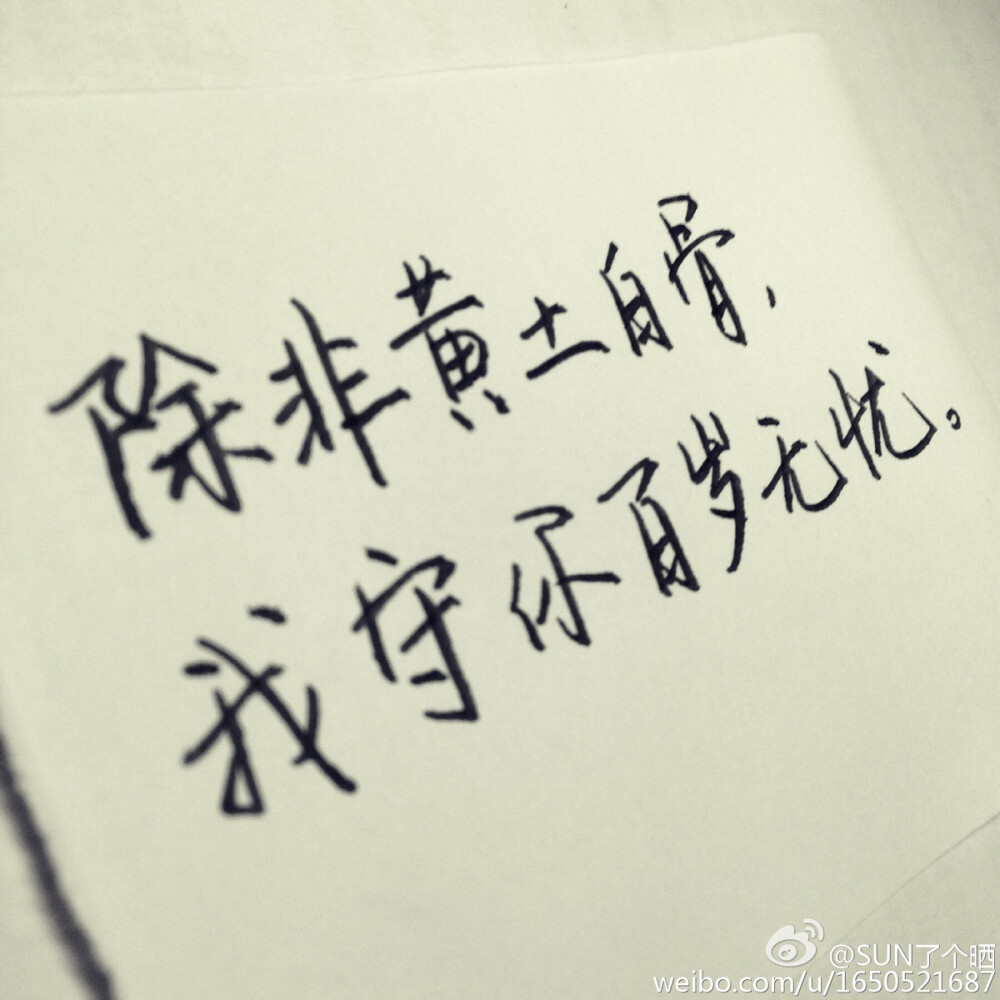 除非黄土白骨,
我守你百岁无忧。
@SUN了个晒
weibo.com/u/1650521687